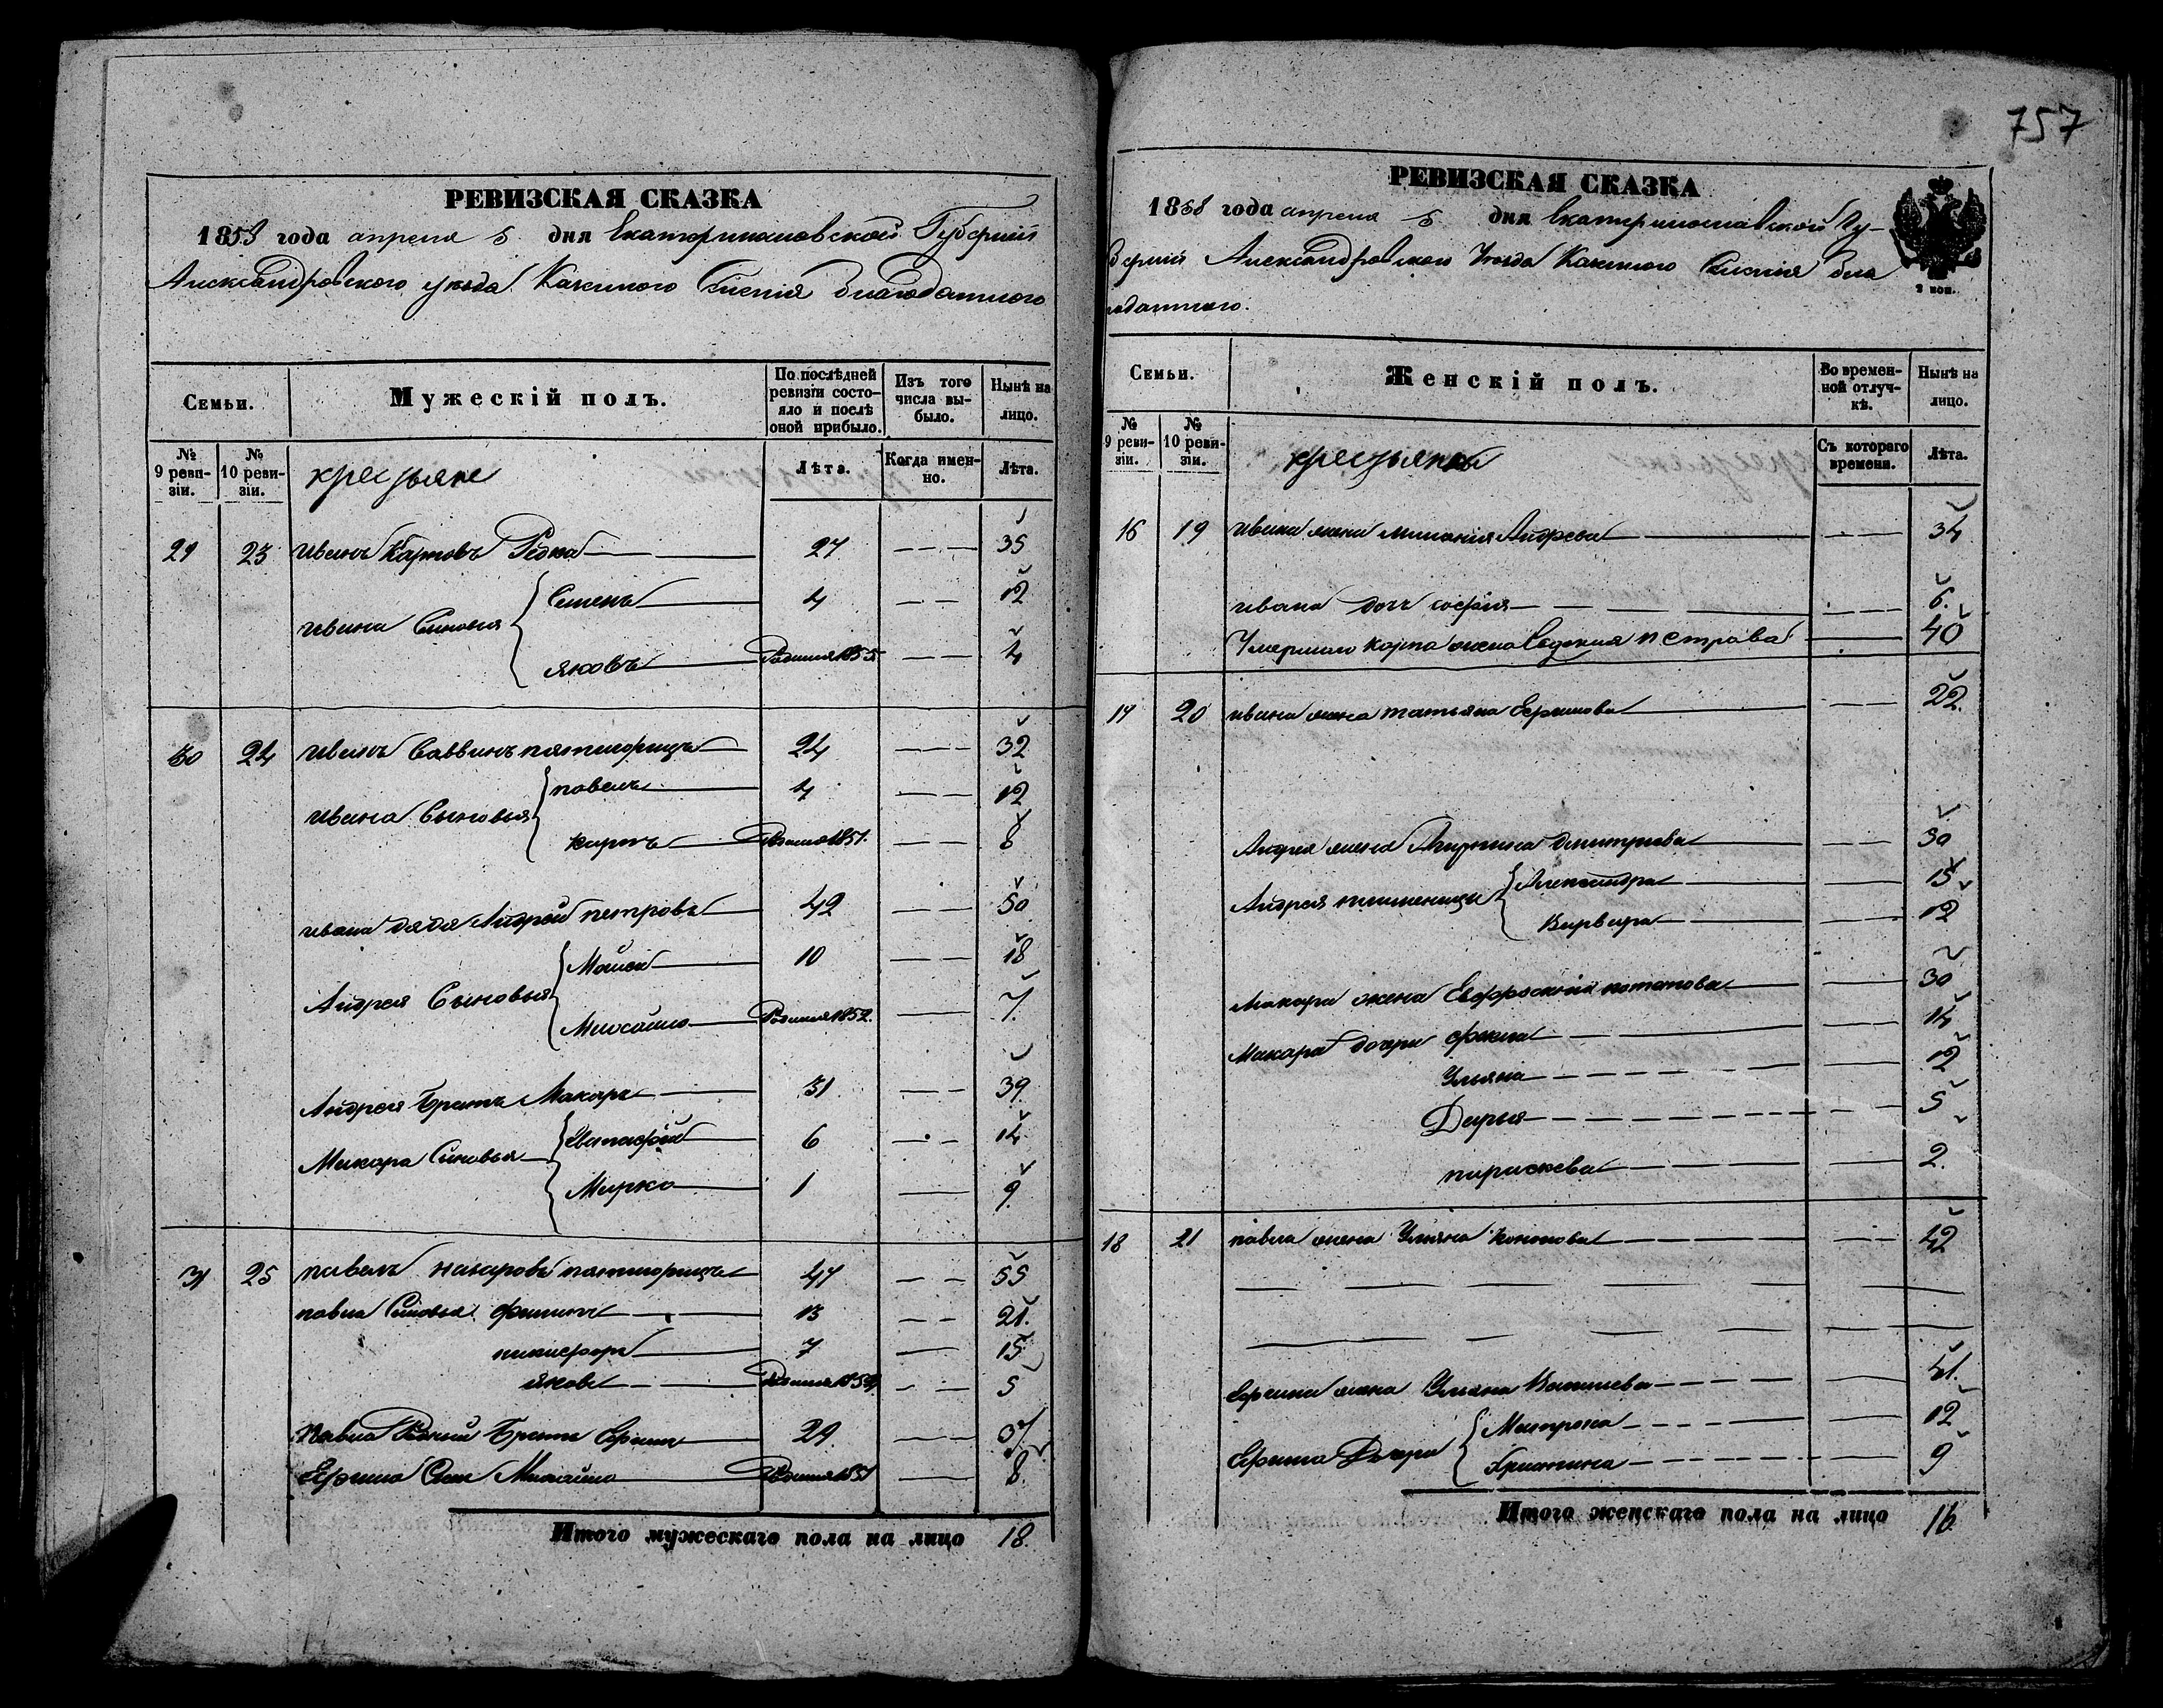 757
РЕВИЗСКАЯ СКАЗКА
1858 года апреля 5 дня Екатеринославской Губернии
Александровского уезда Казенного Селения благодатного
Семьи.
Мужескій полъ.
По послѣдней ревизіи состояло и послѣ оной прибыло.
Изъ того числа выбыло.
Нынѣ на лицо.
№ 9 ревизіи.
№ 10 ревизіи.
крестьяне
Лѣта.
Когда именно.
Лѣта.
29 23 иванъ Карповъ Редка 27 35
ивана Сыновья Семенъ 4 12
яковъ Родился 1855 4
30 24 иванъ Саввинъ 24 32
ивана Сыновья павелъ 4 12
карпъ Родился 1851. 8
ивана дядя Андрей петровъ 42 50
Андрея Сыновья Моисей 10 18
Михайло Родился 1852. 7.
Андрея Братъ Макаръ 31 39.
Макара Сыновья 6 14
Марко 1 9
31 25 павелъ назаровъ 47 55
павла Сыновья филипъ 13 21.
никифоръ 7 15
яковъ Родился 5
Павла Родной Братъ Ефимъ 29 37
Ефима Сын Михайло Родился 1851 8.
Итого мужескаго пола на лицо 18.
РЕВИЗСКАЯ СКАЗКА
1858 года апреля 5 дня Екатеринославской Гу-
берніи Александровского Уезда Казенного Селения бла
годатного.
2 коп.
Семьи.
Женскій полъ.
Во временной отлучкѣ.
Нынѣ на лицо.
№ 9 ревизіи.
№ 10 ревизіи.
крестьянки
Съ котораго времени.
Лѣта.
16 19 ивана жена Андреева 34
ивана доч софия 6.
Умершаго карпа жена Евдокия петрова 40
17 20 ивана жена татьяна Ефимова 22.
Андрея жена дмитриева 30
Андрея племеницы Александра 15
Варвара 12
Макара жена Евфросиния потапова 30
Макара дочери 14
Ульяна 12
Дарья 5
параскева 2.
18 21 павла жена Ульяна кононова 42
Ефима жена Ульяна 41.
Ефима Дочери Матрона 12
Христина 9
Итого женскаго пола на лицо 16.